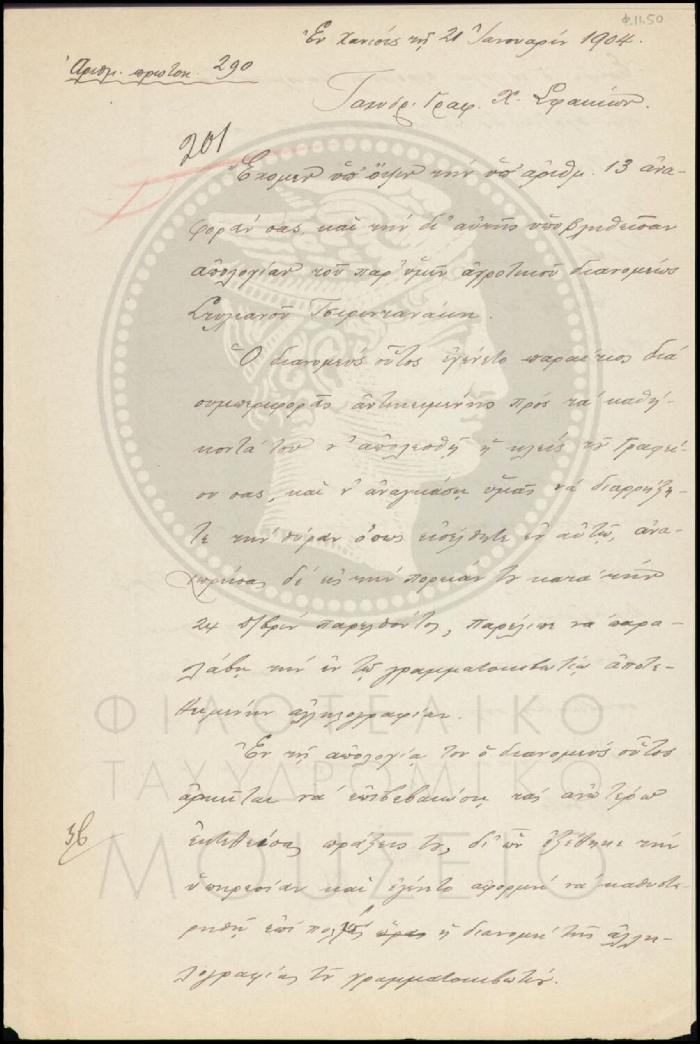 Φ.11.50
Ἐν Χανίοις τῇ 21 Ἰανουαρίου 1904.
Ἀριθμ. πρωτοκ. 290
Ταχυδρ. Γραφ. Χ. Σφακίων.
201
Ἔχομεν ὑπ' ὄψιν τὴν ὑπ' ἀριθμ. 13 ἀνα-
φοράν σας, καὶ τὴν δι' αὐτῆς ὑποβληθεῖσαν
ἀπολογίαν τοῦ παρ' ὑμῖν ἀγροτικοῦ διανομέως
Στυλιανοῦ Τσιριντανάκη.
Ὁ διανομεύς οὗτος ἐγένετο παραίτιος διά
συμπεριφορᾶς ἀντικειμένης πρός τά καθή-
κοντά του ν' ἀπολεσθῇ ἡ κλείς τοῦ Γραφεί-
ου σας, καὶ ν' ἀναγκάσῃ ὑμᾶς νά διαρρήξη-
τε τήν θύραν ὅπως εἰσέλθητε ἐν αὐτῷ, ἀνα-
χωρήσας δέ εἰς τήν πορείαν του κατά τήν
24 παρελθόντος, παρέλιπε νά παρα-
λάβῃ τήν ἐν τῷ γραμματοκιβωτίῳ ἀποτε-
θειμένην ἀλληλογραφίαν.
Ἐν τῇ ἀπολογίᾳ του ὁ διανομεύς οὗτος
ἀρκεῖται νά ἐπιβεβαιώσῃ τάς ἀνωτέρω
ἐκτεθείσας πράξεις του, δι' ὧν ἐξέθηκε τήν
36
ὑπηρεσίαν καί ἐγένετο ἀφορμή νά καθυστε-
ρηθῇ ἐπί πολύ ἡ διανομή τῆς ἀλλη-
λογραφίας τοῦ γραμματοκιβωτίου.
ΦΙΛΟΤΕΛΙΚΟ
ΤΑΧΥΔΡΟΜΙΚΟ
ΜΟΥΣΕΙΟ